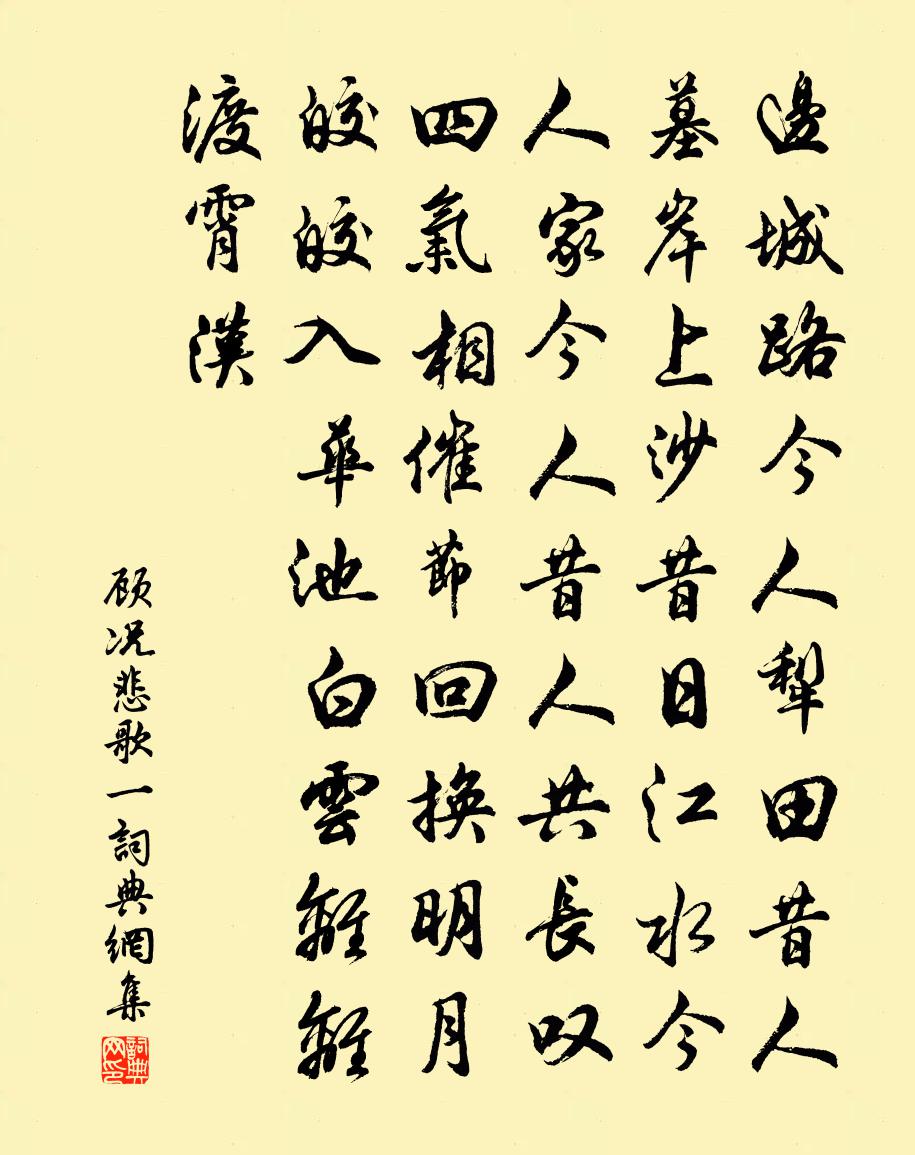 邊城路今人犁田昔人
墓岸上沙昔日江水今
人家今人昔人共長叹
四氣相催節回換明月
皎皎入華池白雲離離
渡霄漢
顾况悲歌一詞典網集
詞典网印